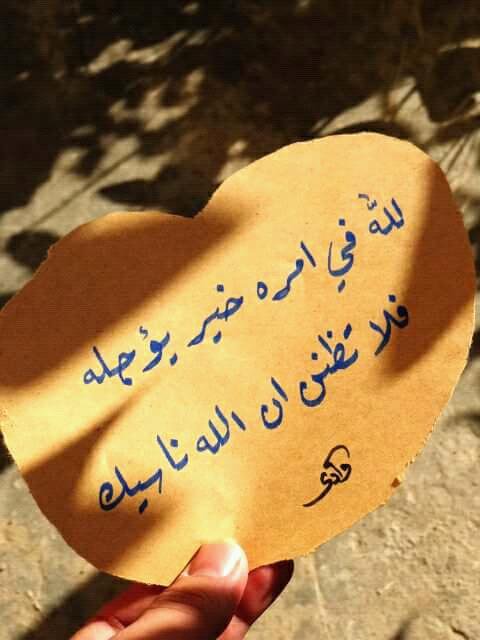 للّٰه في امره خير يؤجله
فلا تظنن ان الله ناسيك